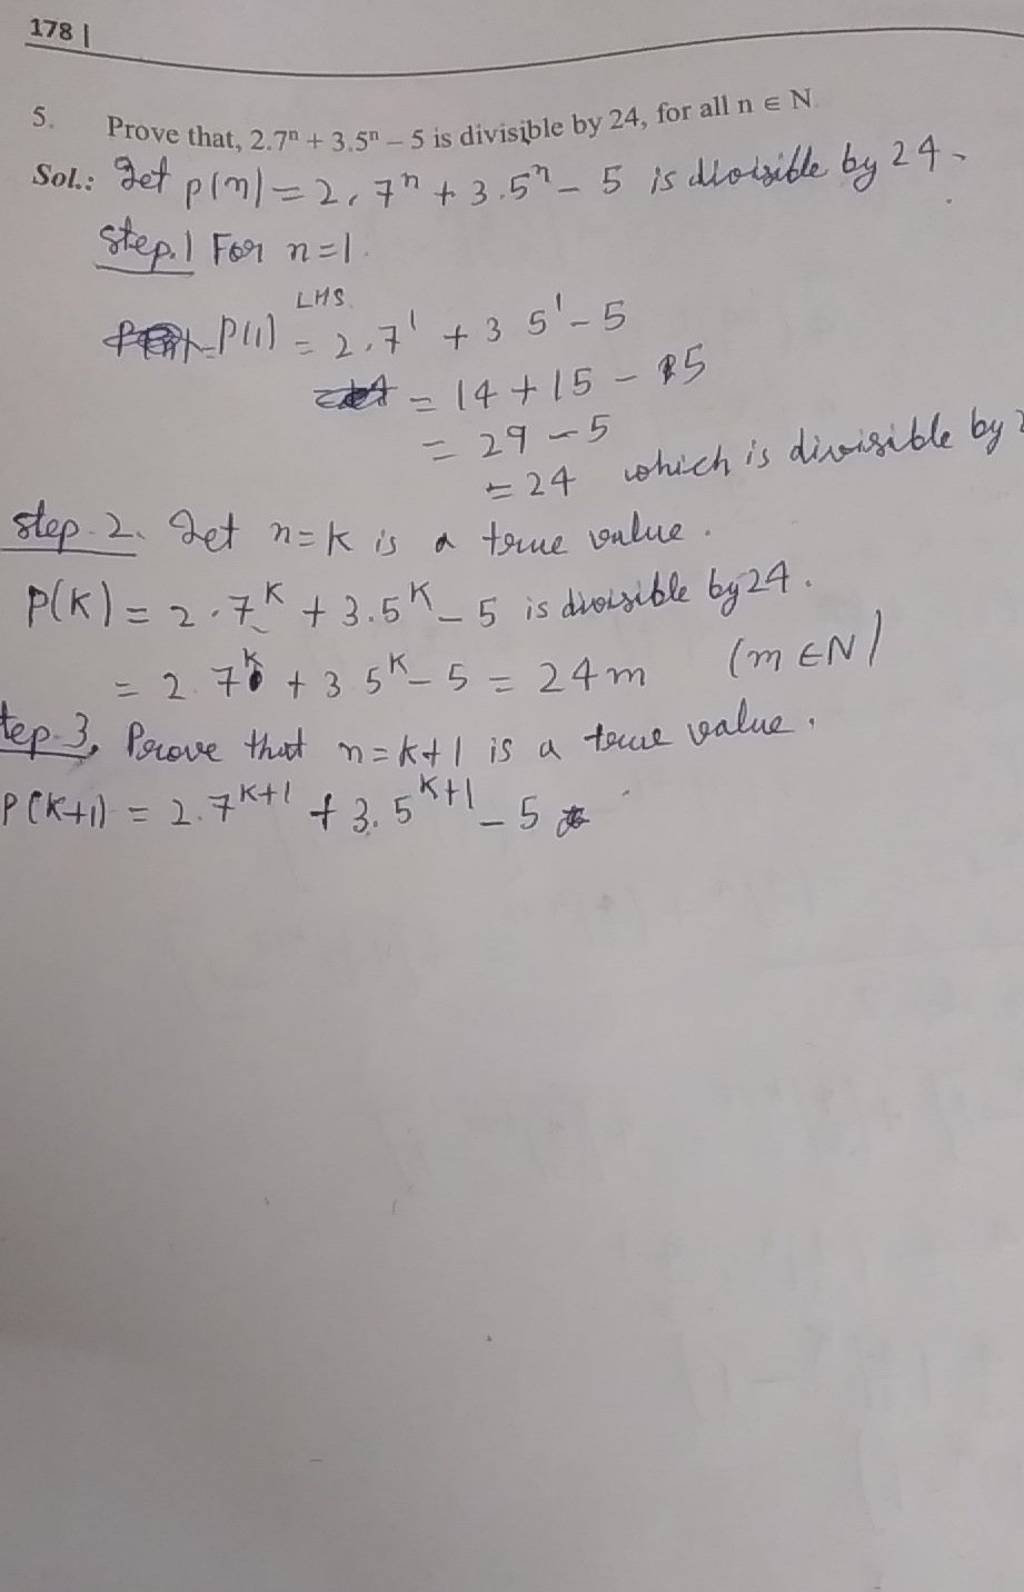 178 |
5. Prove that, 2.7ⁿ + 3.5ⁿ – 5 is divisible by 24, for all n ∈ N.
Sol.: Let p(n) = 2.7ⁿ + 3.5ⁿ – 5 is divisible by 24.
Step.1 For n=1.
LHS
P(1) = 2.7¹ + 3 5¹ – 5
= 14 + 15 – 5
= 29 – 5
= 24 which is divisible by 2
step-2. Let n=k is a true value.
P(K) = 2.7ᴷ + 3.5ᴷ – 5 is divisible by 24.
= 2.7ᴷ + 3 5ᴷ – 5 = 24m (m ∈ N)
tep-3, Prove that n=k+1 is a true value.
P(K+1) = 2.7ᴷ⁺¹ + 3.5ᴷ⁺¹ – 5